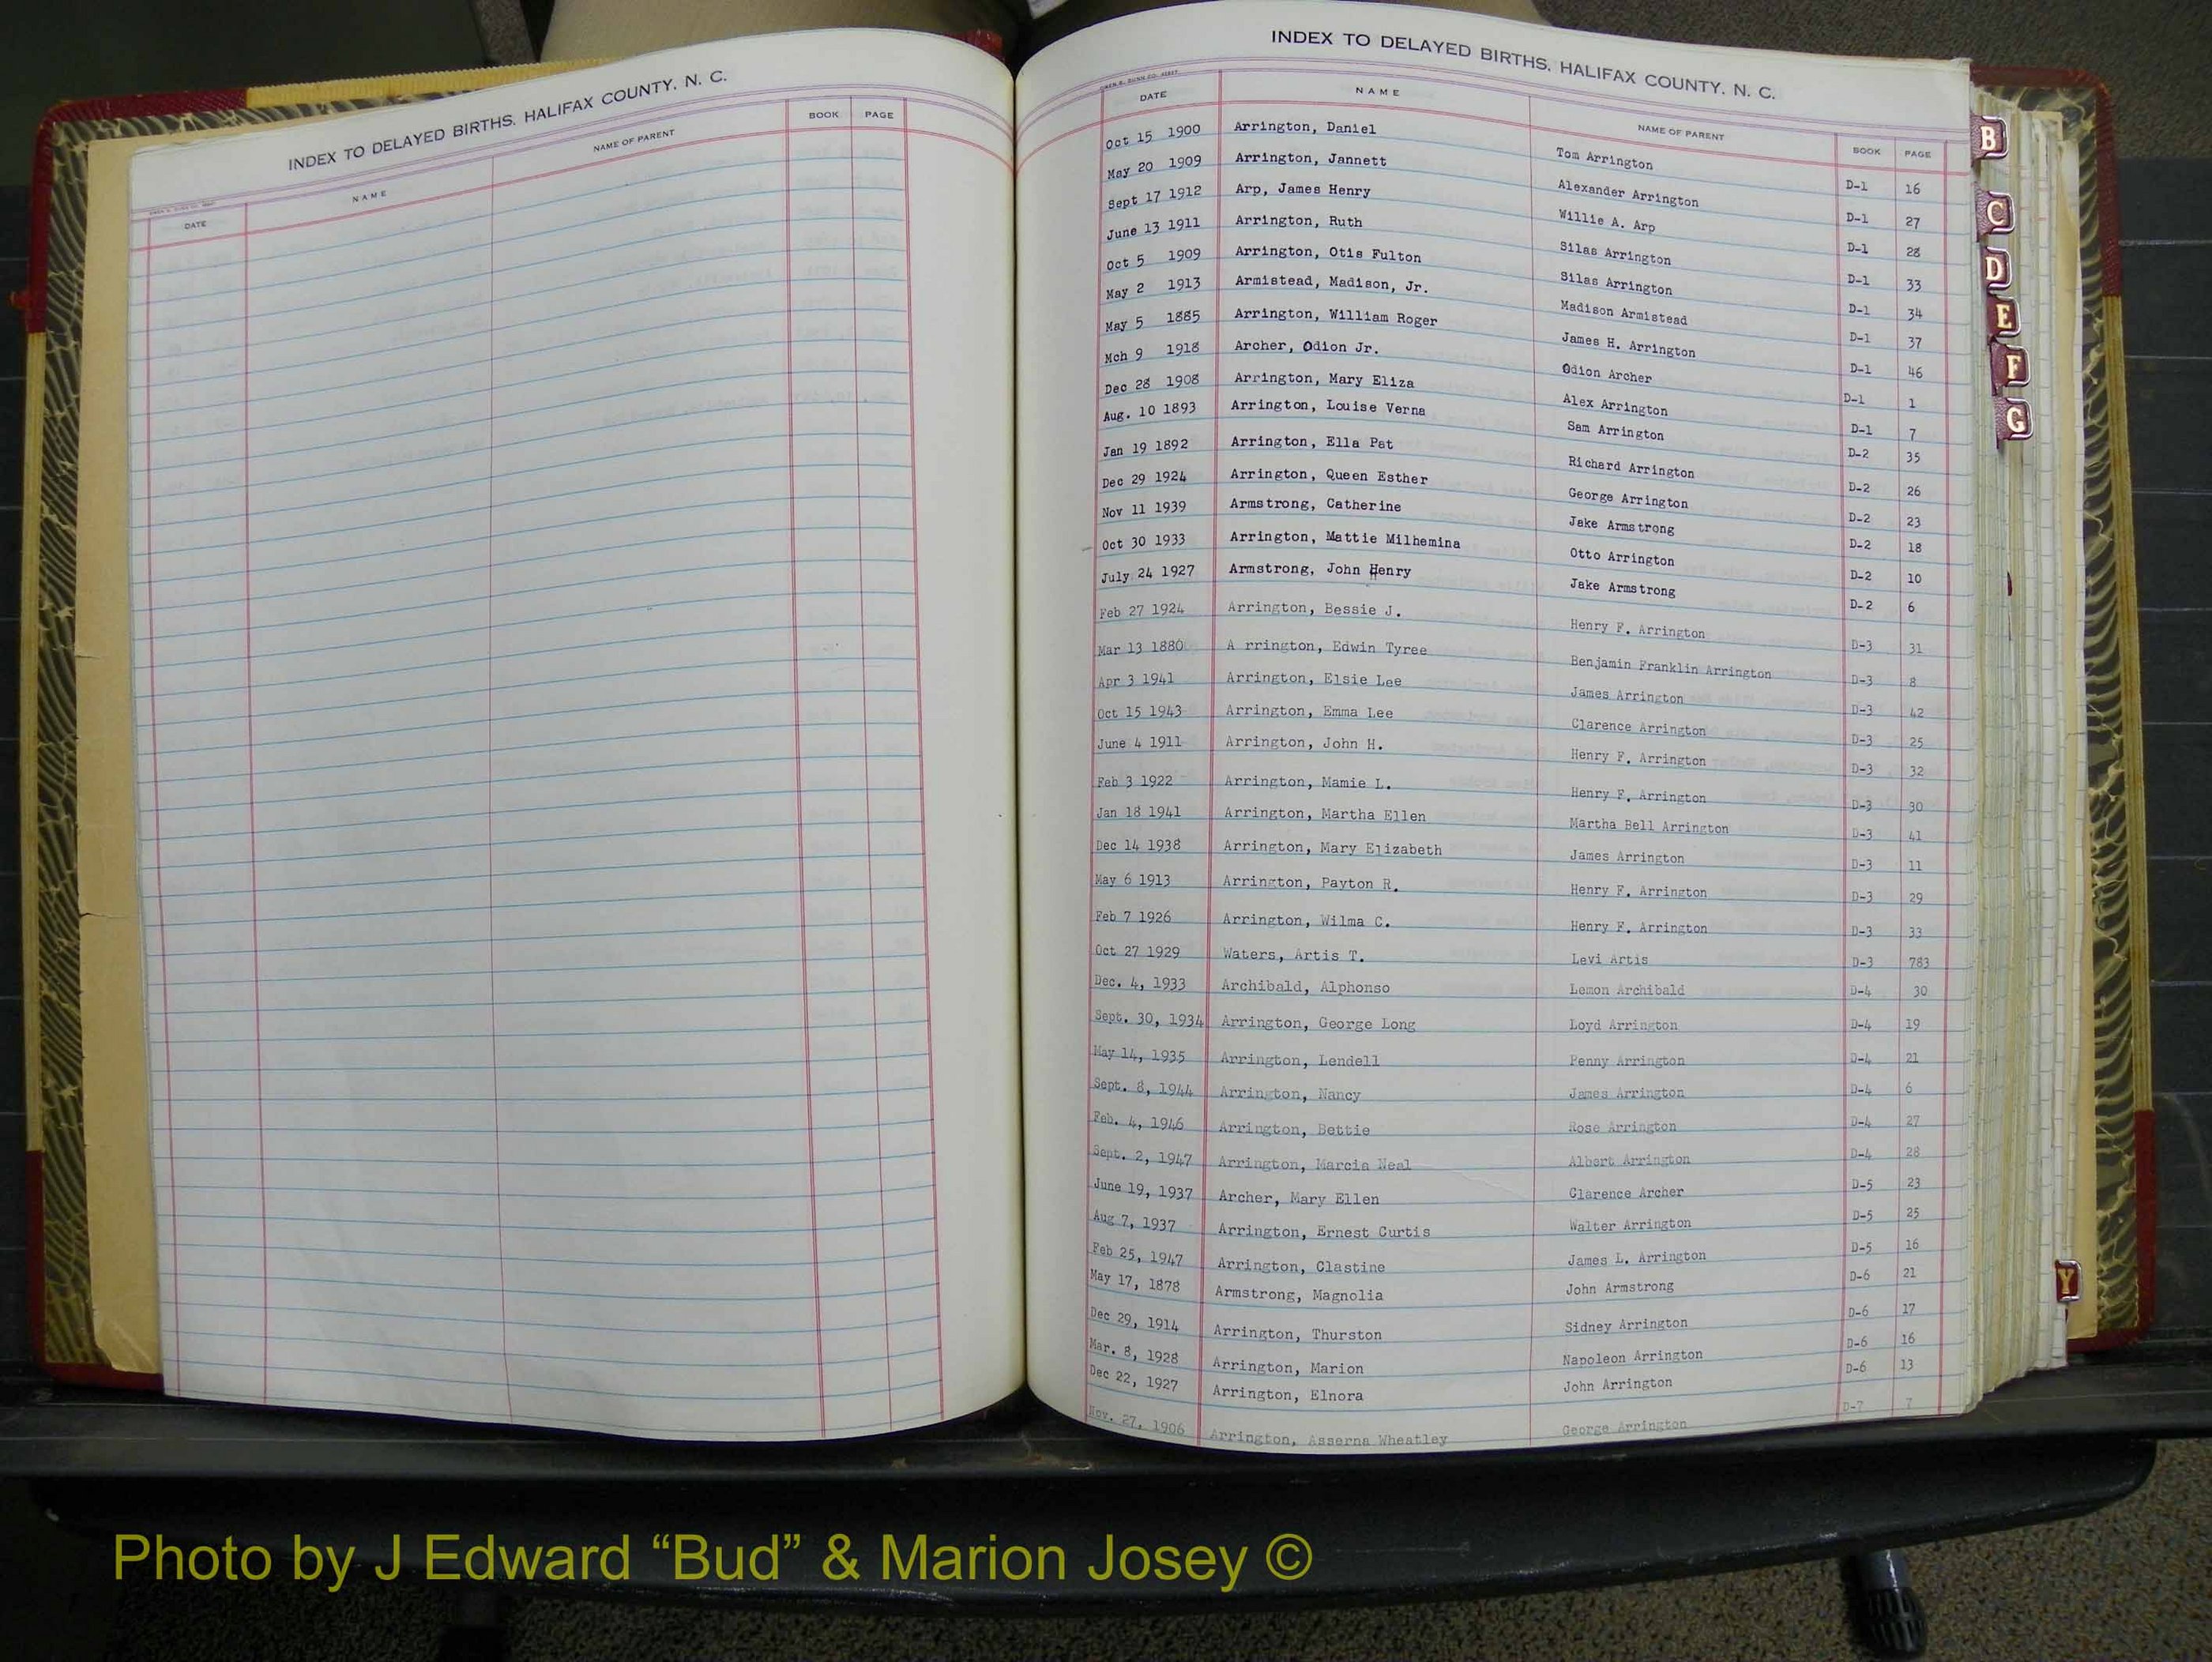 INDEX TO DELAYED BIRTHS, HALIFAX COUNTY, N. C.
DATE NAME NAME OF PARENT BOOK PAGE
INDEX TO DELAYED BIRTHS, HALIFAX COUNTY, N. C.
DATE NAME NAME OF PARENT BOOK PAGE
Oct 15 1900 Arrington, Daniel Tom Arrington D-1 16
May 20 1909 Arrington, Jannett Alexander Arrington D-1 27
Sept 17 1912 Arp, James Henry Willie A. Arp D-1 28
June 13 1911 Arrington, Ruth Silas Arrington D-1 33
Oct 5 1909 Arrington, Otis Fulton Silas Arrington D-1 34
May 2 1913 Armistead, Madison, Jr. Madison Armistead D-1 37
May 5 1885 Arrington, William Roger James H. Arrington D-1 46
Mch 9 1918 Archer, Odion Jr. Odion Archer D-1 1
Dec 28 1908 Arrington, Mary Eliza Alex Arrington D-1 7
Aug. 10 1893 Arrington, Louise Verna Sam Arrington D-2 35
Jan 19 1892 Arrington, Ella Pat Richard Arrington D-2 26
Dec 29 1924 Arrington, Queen Esther George Arrington D-2 23
Nov 11 1939 Armstrong, Catherine Jake Armstrong D-2 18
Oct 30 1933 Arrington, Mattie Milhemina Otto Arrington D-2 10
July 24 1927 Armstrong, John Henry Jake Armstrong D-2 6
Feb 27 1924 Arrington, Bessie J. Henry F. Arrington D-3 31
Mar 13 1880 A rrington, Edwin Tyree Benjamin Franklin Arrington D-3 8
Apr 3 1941 Arrington, Elsie Lee James Arrington D-3 42
Oct 15 1943 Arrington, Emma Lee Clarence Arrington D-3 25
June 4 1911 Arrington, John H. Henry F. Arrington D-3 32
Feb 3 1922 Arrington, Mamie L. Henry F. Arrington D-3 30
Jan 18 1941 Arrington, Martha Ellen Martha Bell Arrington D-3 41
Dec 14 1938 Arrington, Mary Elizabeth James Arrington D-3 11
May 6 1913 Arrington, Payton R. Henry F. Arrington D-3 29
Feb 7 1926 Arrington, Wilma C. Henry F. Arrington D-3 33
Oct 27 1929 Waters, Artis T. Levi Artis D-3 783
Dec. 4, 1933 Archibald, Alphonso Lemon Archibald D-4 30
Sept. 30, 1934 Arrington, George Long Loyd Arrington D-4 19
May 14, 1935 Arrington, Lendell Penny Arrington D-4 21
Sept. 8, 1944 Arrington, Nancy James Arrington D-4 6
Feb. 4, 1946 Arrington, Bettie Rose Arrington D-4 27
Sept. 2, 1947 Arrington, Marcia Neal Albert Arrington D-4 28
June 19, 1937 Archer, Mary Ellen Clarence Archer D-5 23
Aug 7, 1937 Arrington, Ernest Curtis Walter Arrington D-5 25
Feb 25, 1947 Arrington, Clastine James L. Arrington D-5 16
May 17, 1878 Armstrong, Magnolia John Armstrong D-6 21
Dec 29, 1914 Arrington, Thurston Sidney Arrington D-6 17
Mar. 8, 1928 Arrington, Marion Napoleon Arrington D-6 16
Dec 22, 1927 Arrington, Elnora John Arrington D-6 13
Nov. 27, 1906 Arrington, Asserna Wheatley George Arrington D-7 7
B
C
D
E
F
G
Y
Photo by J Edward “Bud” & Marion Josey ©